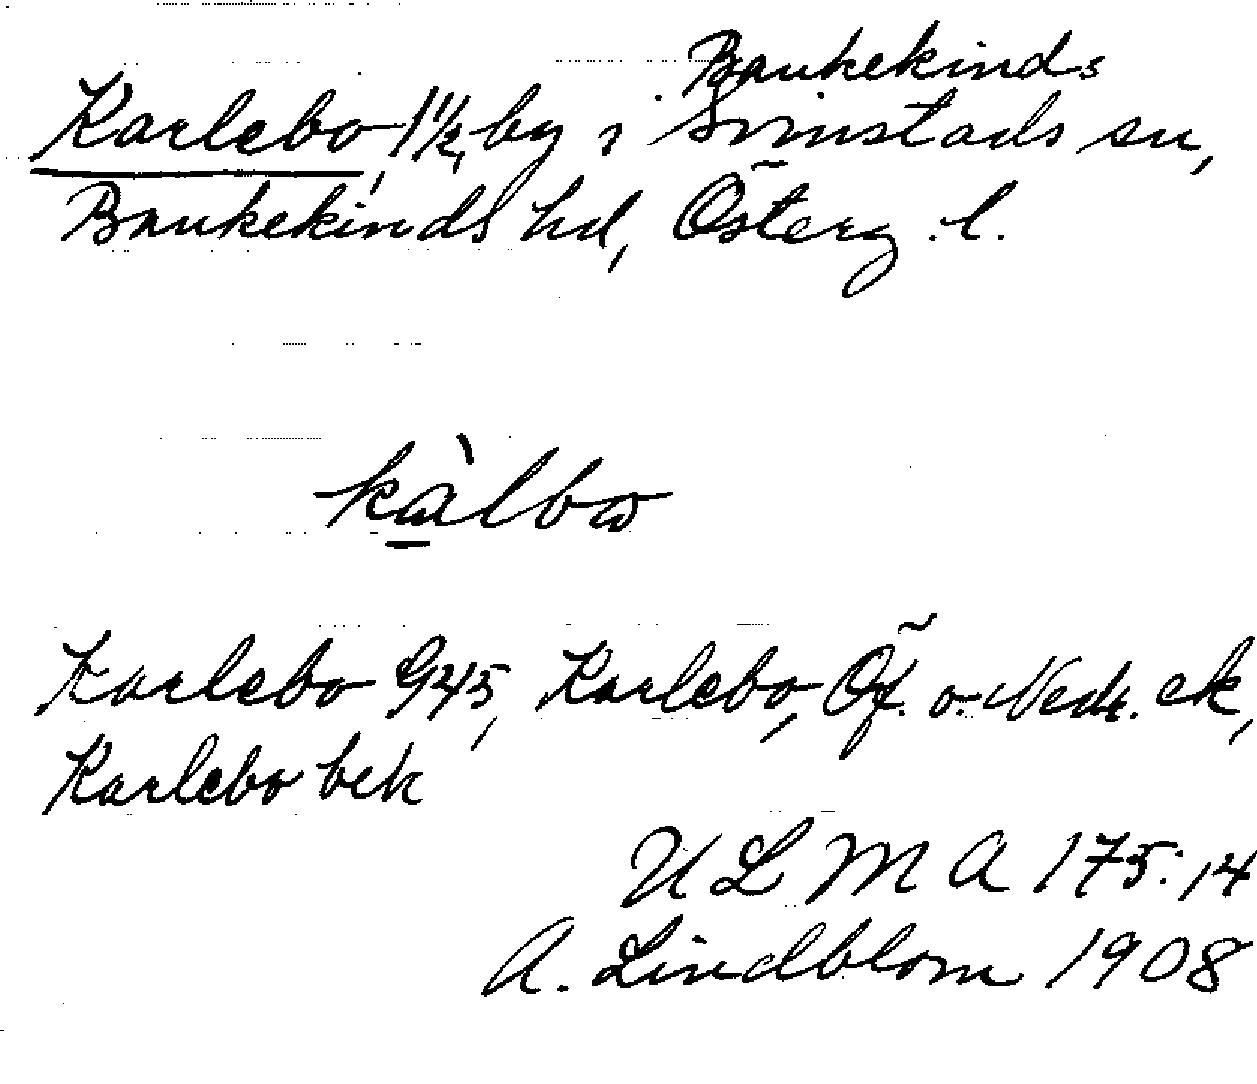 Bankekinds
Karlebo, 1 1/2, by i Svinstads sn,
Bankekinds hd, Österg. l.
kàlbω
Karlebo G 245, Karlebo, Öf. o. Nedr. ek,
Karlebo bek
ULMA 175:14
A. Lindblom 1908